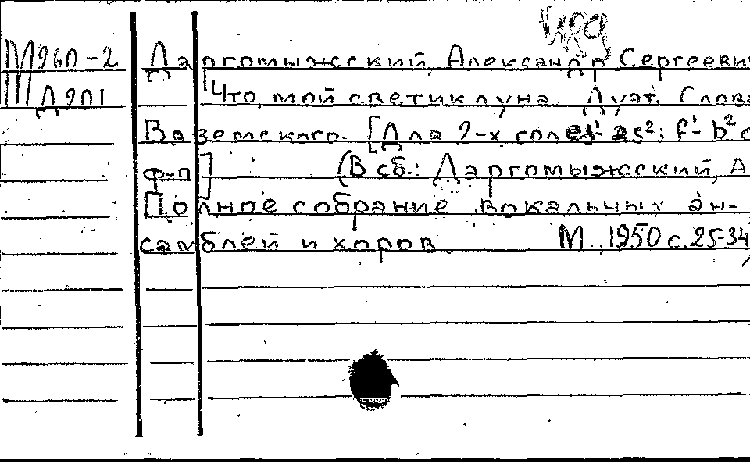 М960-2 Даргомыжский, Александр Сергеевич
Д901 [Что, мой светик луна. Дуэт. Слова
Вяземского. [Для 2-х голес. es¹-as²; f¹-b² с
ф-п] (В сб.: Даргомыжский, А
Полное собрание вокальных ан-
самблей и хоров. М., 1950 с. 25-34